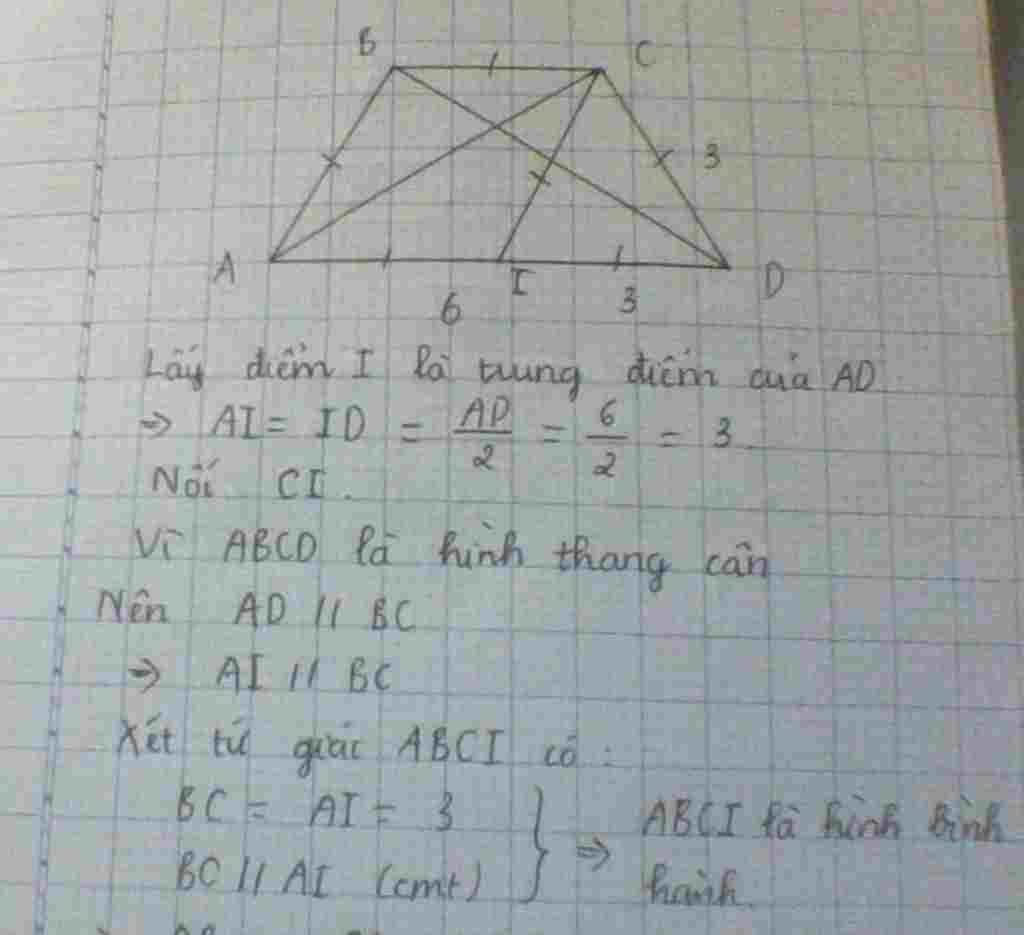 B C
3
A I D
6 3
Lấy điểm I là trung điểm của AD
=> AI = ID = AD/2 = 6/2 = 3
Nối CI.
Vì ABCD là hình thang cân
Nên AD // BC
=> AI // BC
Xét tứ giác ABCI có :
BC = AI = 3
BC // AI (cmt) } => ABCI là hình bình
hành.